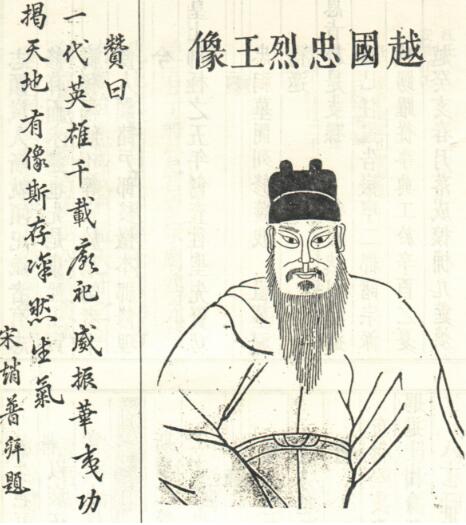 越國忠烈王像
贊曰
一代英雄千載廟祀威振華夷功
揭天地有像斯存凜然生氣
宋趙普拜題